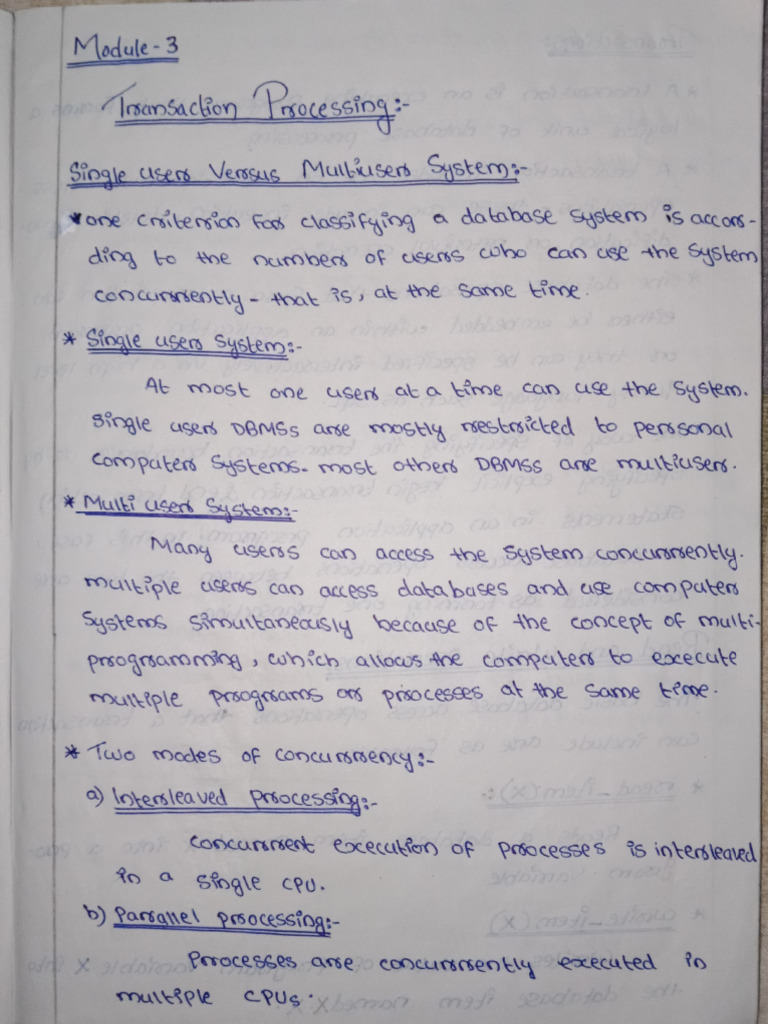 Module-3
Transaction Processing:-
Single user Versus Multiuser System:-
* one criterion for classifying a database system is accor-
ding to the number of users who can use the system
concurrently - that is, at the same time.
* Single user System:-
At most one user at a time can use the system.
Single user DBMSs are mostly restricted to personal
computer systems. most other DBMSs are multiuser.
* Multi user System:-
Many users can access the system concurrently.
multiple users can access databases and use computer
systems simultaneously because of the concept of multi-
programming, which allows the computer to execute
multiple programs or processes at the same time.
* Two modes of concurrency:-
a) Interleaved processing:-
concurrent execution of processes is interleaved
in a single CPU.
b) Parallel processing:-
Processes are concurrently executed in
multiple CPUs.